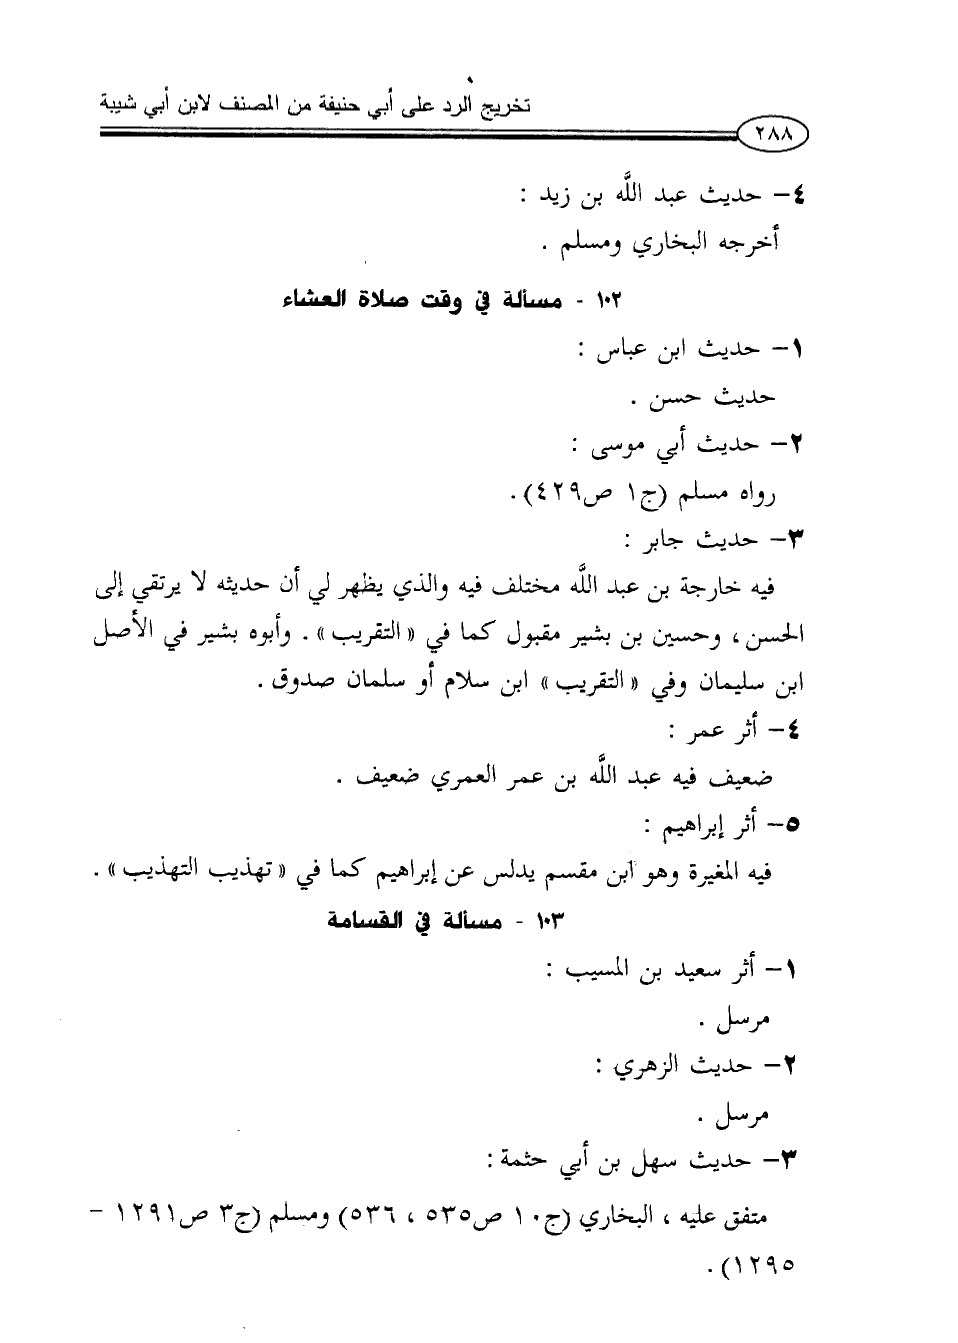 تخريج الرد على أبي حنيفة من المصنف لابن أبي شيبة
٢٨٨
٤- حديث عبد اللَّه بن زيد :
أخرجه البخاري ومسلم .
١٠٢ - مسألة في وقت صلاة العشاء
١- حديث ابن عباس :
حديث حسن .
٢- حديث أبي موسى :
رواه مسلم (ج١ ص٤٢٩).
٣- حديث جابر :
فيه خارجة بن عبد اللَّه مختلف فيه والذي يظهر لي أن حديثه لا يرتقي إلى
الحسن ، وحسين بن بشير مقبول كما في « التقريب » . وأبوه بشير في الأصل
ابن سليمان وفي « التقريب » ابن سلام أو سلمان صدوق .
٤- أثر عمر :
ضعيف فيه عبد اللَّه بن عمر العمري ضعيف .
٥- أثر إبراهيم :
فيه المغيرة وهو ابن مقسم يدلس عن إبراهيم كما في « تهذيب التهذيب » .
١٠٣ - مسألة في القسامة
١- أثر سعيد بن المسيب :
مرسل .
٢- حديث الزهري :
مرسل .
٣- حديث سهل بن أبي حثمة :
متفق عليه ، البخاري (ج١٠ ص٥٣٥ ، ٥٣٦) ومسلم (ج٣ ص١٢٩١ -
١٢٩٥).